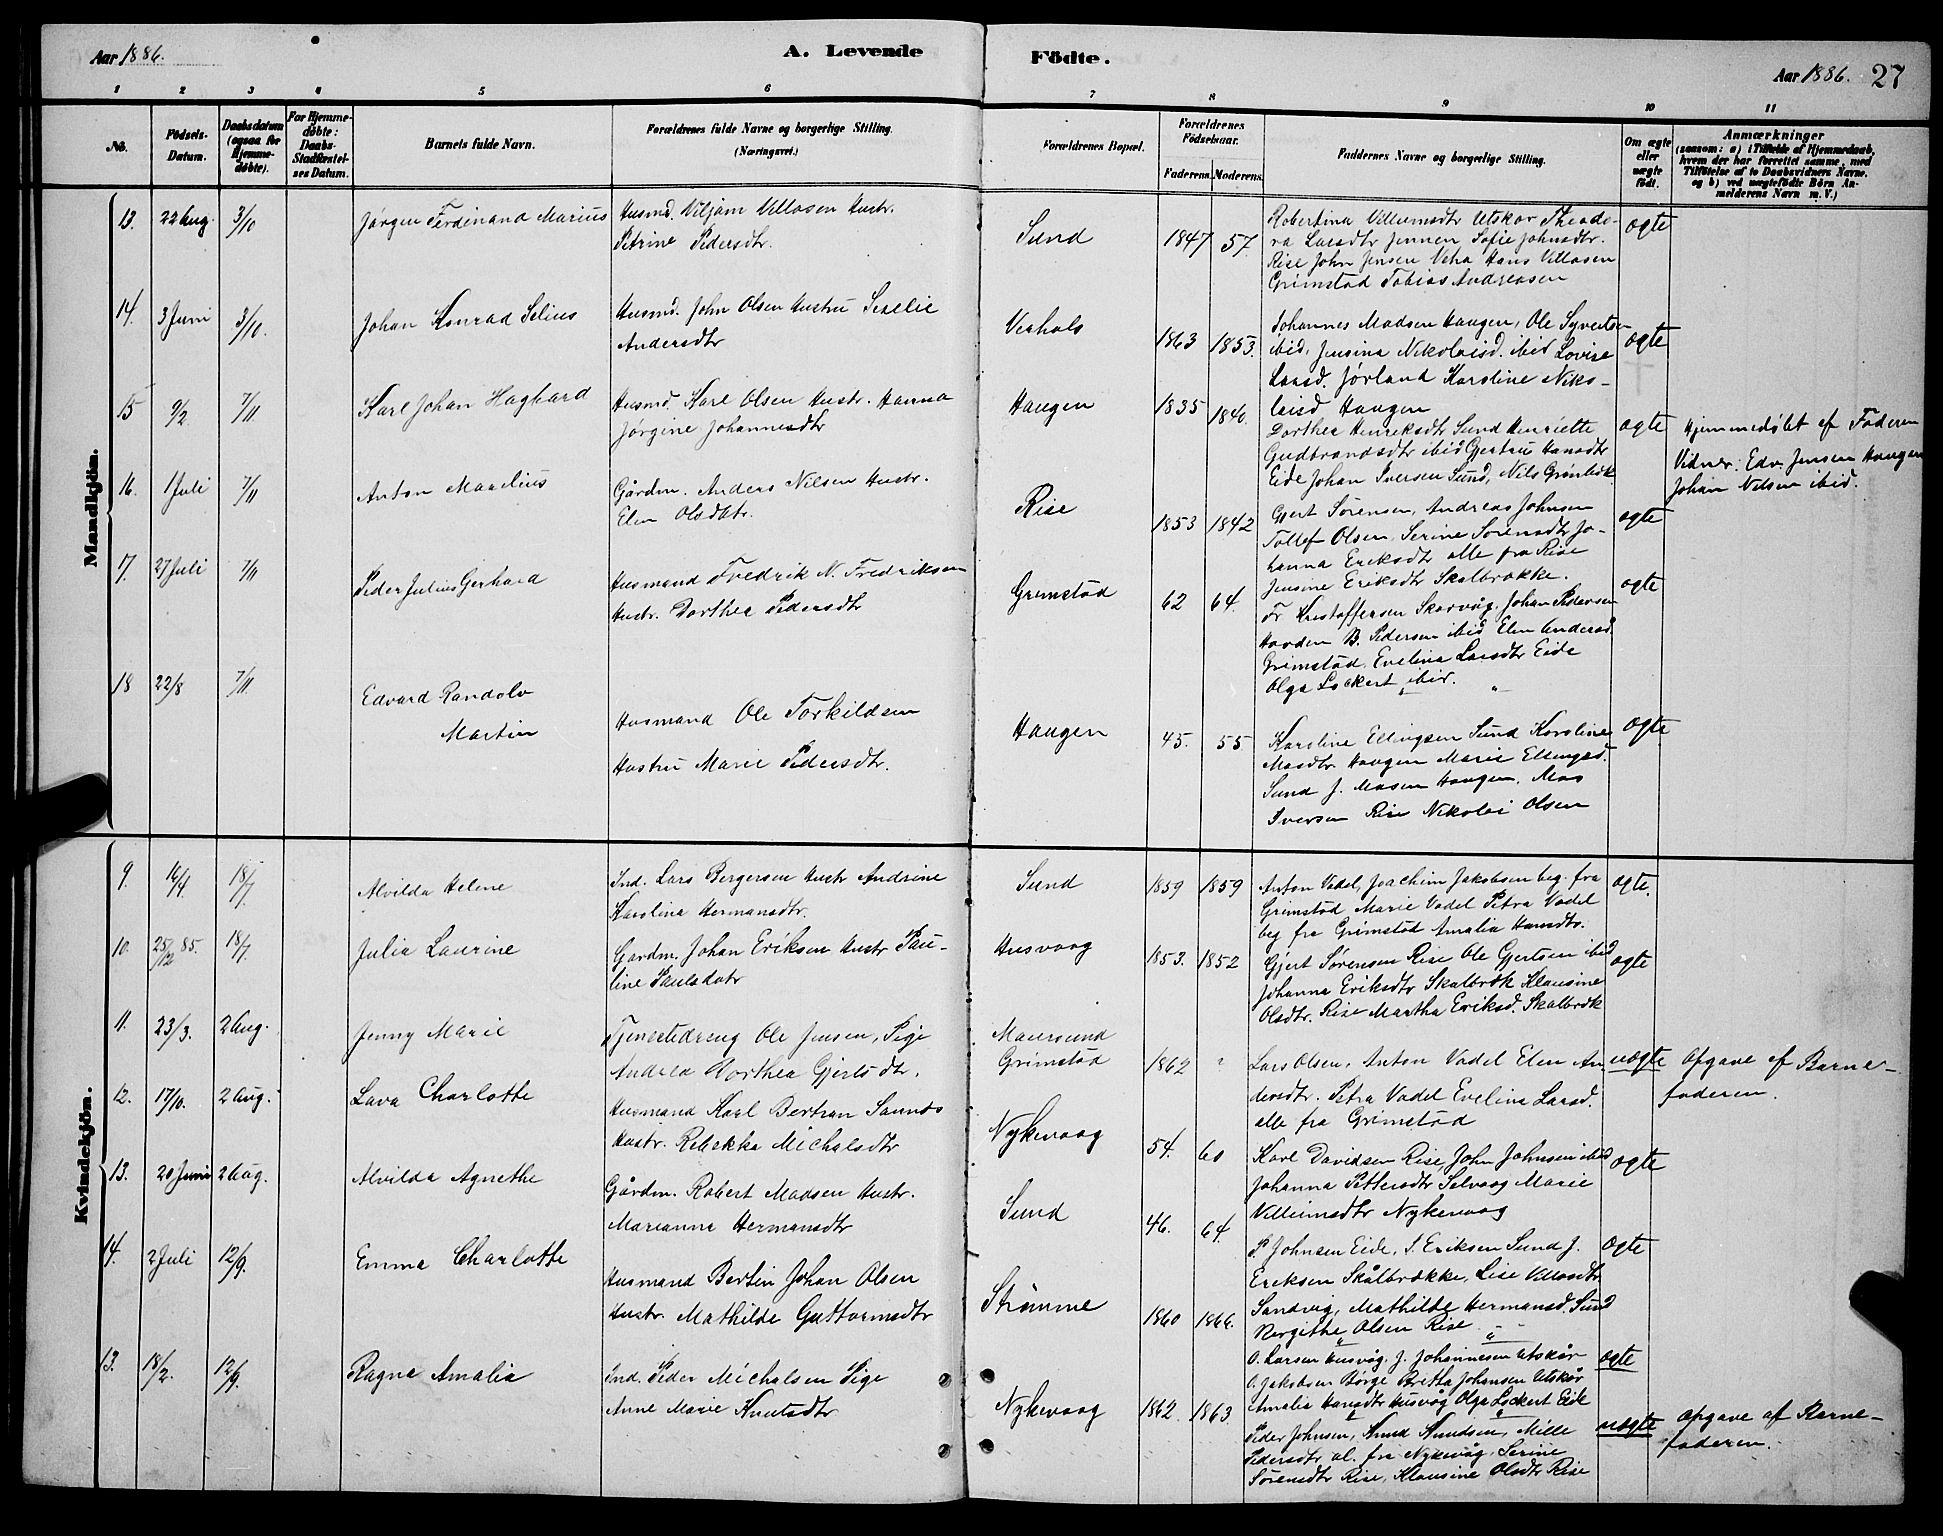 Aar 1886.
A. Levende Födte.
Aar 1886. 27
1 2 3 4 5 6 7 8 9 10 11
No.
Födsels-Datum.
Daabsdatum (ogsaa for Hjemmedøbte).
For Hjemmedøbte: Daabs-Stadfæstelses Datum.
Barnets fulde Navn.
Forældrenes fulde Navne og borgerlige Stilling. (Næringsvei.)
Forældrenes Bopæl.
Forældrenes Födselsaar.
Faderens. Moderens.
Faddernes Navne og borgerlige Stilling.
Om ægte eller uægte født.
Anmærkninger
(saasom: a) i Tilfælde af Hjemmedaab,
hvem der har forrettet samme, med
Tilföielse af to Daabsvidners Navne,
og b) ved uægtefødte Börn An-
melderens Navn m. V.)
Mandkjön.
13. 22 Aug. 3/10 Jørgen Ferdinand Marius
Husmd. Viljam Villasen Hustr.
Petrine Pedersdtr.
Sund 1847 57.
Robertina Villumsdtr Utskor Theodo-
ra Larsdtr Jennen Sofie Johnsdtr.
Rise John Jensen Veha Hans Villasen
Grimstad Tobias Andreasen
ægte
14. 3 Juni 3/10. Johan Konrad Selius
Husmd. John Olsen Hustru Seselie
Andersdtr
Veahals 1863 1853.
Johannes Madsen Haugen, Ole Syvertsen
ibid, Jensina Nikolaisd. ibid Lovise
Larsd. Jørland Karoline Niko-
laisd Haugen
ægte
15 9/2 7/11. Karl Johan Hagbard
Husmd. Karl Olsen Hustr. Hanna
Jørgine Johannesdtr
Haugen 1835 1840.
Dorthea Henriksdtr Sund Henriette
Gudbrandsdtr ibid Gjertru Hansdtr
Eide Johan Iversen Sund, Nils Grønbek
ægte
Hjemmedøbt af Faderen
Vidner: Edv. Jensen Haugen
Johan Nilsen ibid.
16. 1 Juli 7/11 Anton Marelius
Gårdm. Anders Nilsen Hustr.
Elen Olsdtr.
Rise 1853 1842
Gjert Sørensen, Andreas Johnsen
Tollef Olsen, Serine Sørensdtr Jo-
hanna Eriksdtr alle fra Rise
Jensine Eriksdtr Skalbrække.
ægte
17. 27 Juli 7/11 Peder Julius Gerhard
Husmand Fredrik N. Fredriksen
Hustr. Dorthea Pedersdtr
Grimstad 62 64.
Fr Kristoffersen Skarvåg, Johan Pedersen
Hovden B. Pedersen ibid Elen Andersd.
Grimstad, Evelina Larsdtr Eide
Olga Lockert ibid.
ægte
18 22/8 7/11 Edvard Randolv
Martin
Husmand Ole Torkildsen
Hustru Marie Pedersdtr.
Haugen 45. 55
Karoline Ellingsen Sund Karoline
Masdtr. Haugen Marie Ellingsd.
Sund J. Masen Haugen, Mas
Iversen Rise Nikolai Olsen
ægte
Kvindekjön.
9. 16/4 18/7. Alvilda Helene
Ind. Lars Bergersen Hustr Andrine
Karolina Hermansdtr.
Sund 1859 1859
Anton Vadel, Joachim Jakobsen beg. fra
Grimstad Marie Vadel Petra Vadel
beg fra Grimstad Amalia Hansdtr.
ægte.
10. 25/12 85. 18/7. Julia Laurine
Gårdm. Johan Eriksen Hustr Pau-
line Paulsdatr
Husvaag 1853. 1852
Gjert Sørensen Rise Ole Gjertsen ibid
Johanna Eriksdtr Skalbrok Klausine
Olsdtr. Rise Martha Eriksd. Skalbrok
ægte
11. 23/3. 2 Aug. Jenny Marie
Tjenestedreng Ole Jensen, Pige
Andrea Dorthea Gjertsdtr.
Maursund
Grimstad 1862 ?
Lars Olsen, Anton Vadel Elen An
dersdtr. Petra Vadel Evelina Larsd.
alle fra Grimstad
uægte
Opgave af Barne-
faderen.
12. 17/10. 2 Aug. Lava Charlotte
Husmand Karl Bertran Saunds
Hustr. Rebekka Michalsdtr
Nykevaag 54. 60
Karl Davidsen Rise, John Johnsen ibid
Johanna Pettersdtr Selvaag Marie
Villumsdtr Nykevaag
ægte
13. 20 Juni 2 Aug. Alvilda Agnethe
Gårdm. Robert Madsen Hustr.
Marianna Hermansdtr
Sund 46. 64.
P Johnsen Eide, S. Eriksen Sund J.
Eriksen Skålbrække, Lise Villasdtr
Sandvig, Mathilde Hermansd. Sund
Bergithe Olsen Rise
ægte
14. 2 Juli 12/9. Emma Charlotte
Husmand Bertin Johan Olsen
Hustr. Mathilde Guttormsdtr
Strømme 1860 1866.
O. Larsen Husvåg, J. Johannesen Utskår
O. Jakobsen Børge Beretha Johansen Utskår
Amalia Hansdtr Husvåg Olga Lockert Eide
ægte
13. 18/2. 12/9. Ragna Amalia
Ind. Peder Michalsen Pige
Anne Marie Knutsdtr
Nykevaag 1862. 1863.
Peder Johnsen, Knud Knudsen, Mille
Pedersdtr al. fra Nykevåg. Serine
Sørensdtr Rise, Klausine Olsdtr Rise
uægte
Opgave af Barne-
faderen.